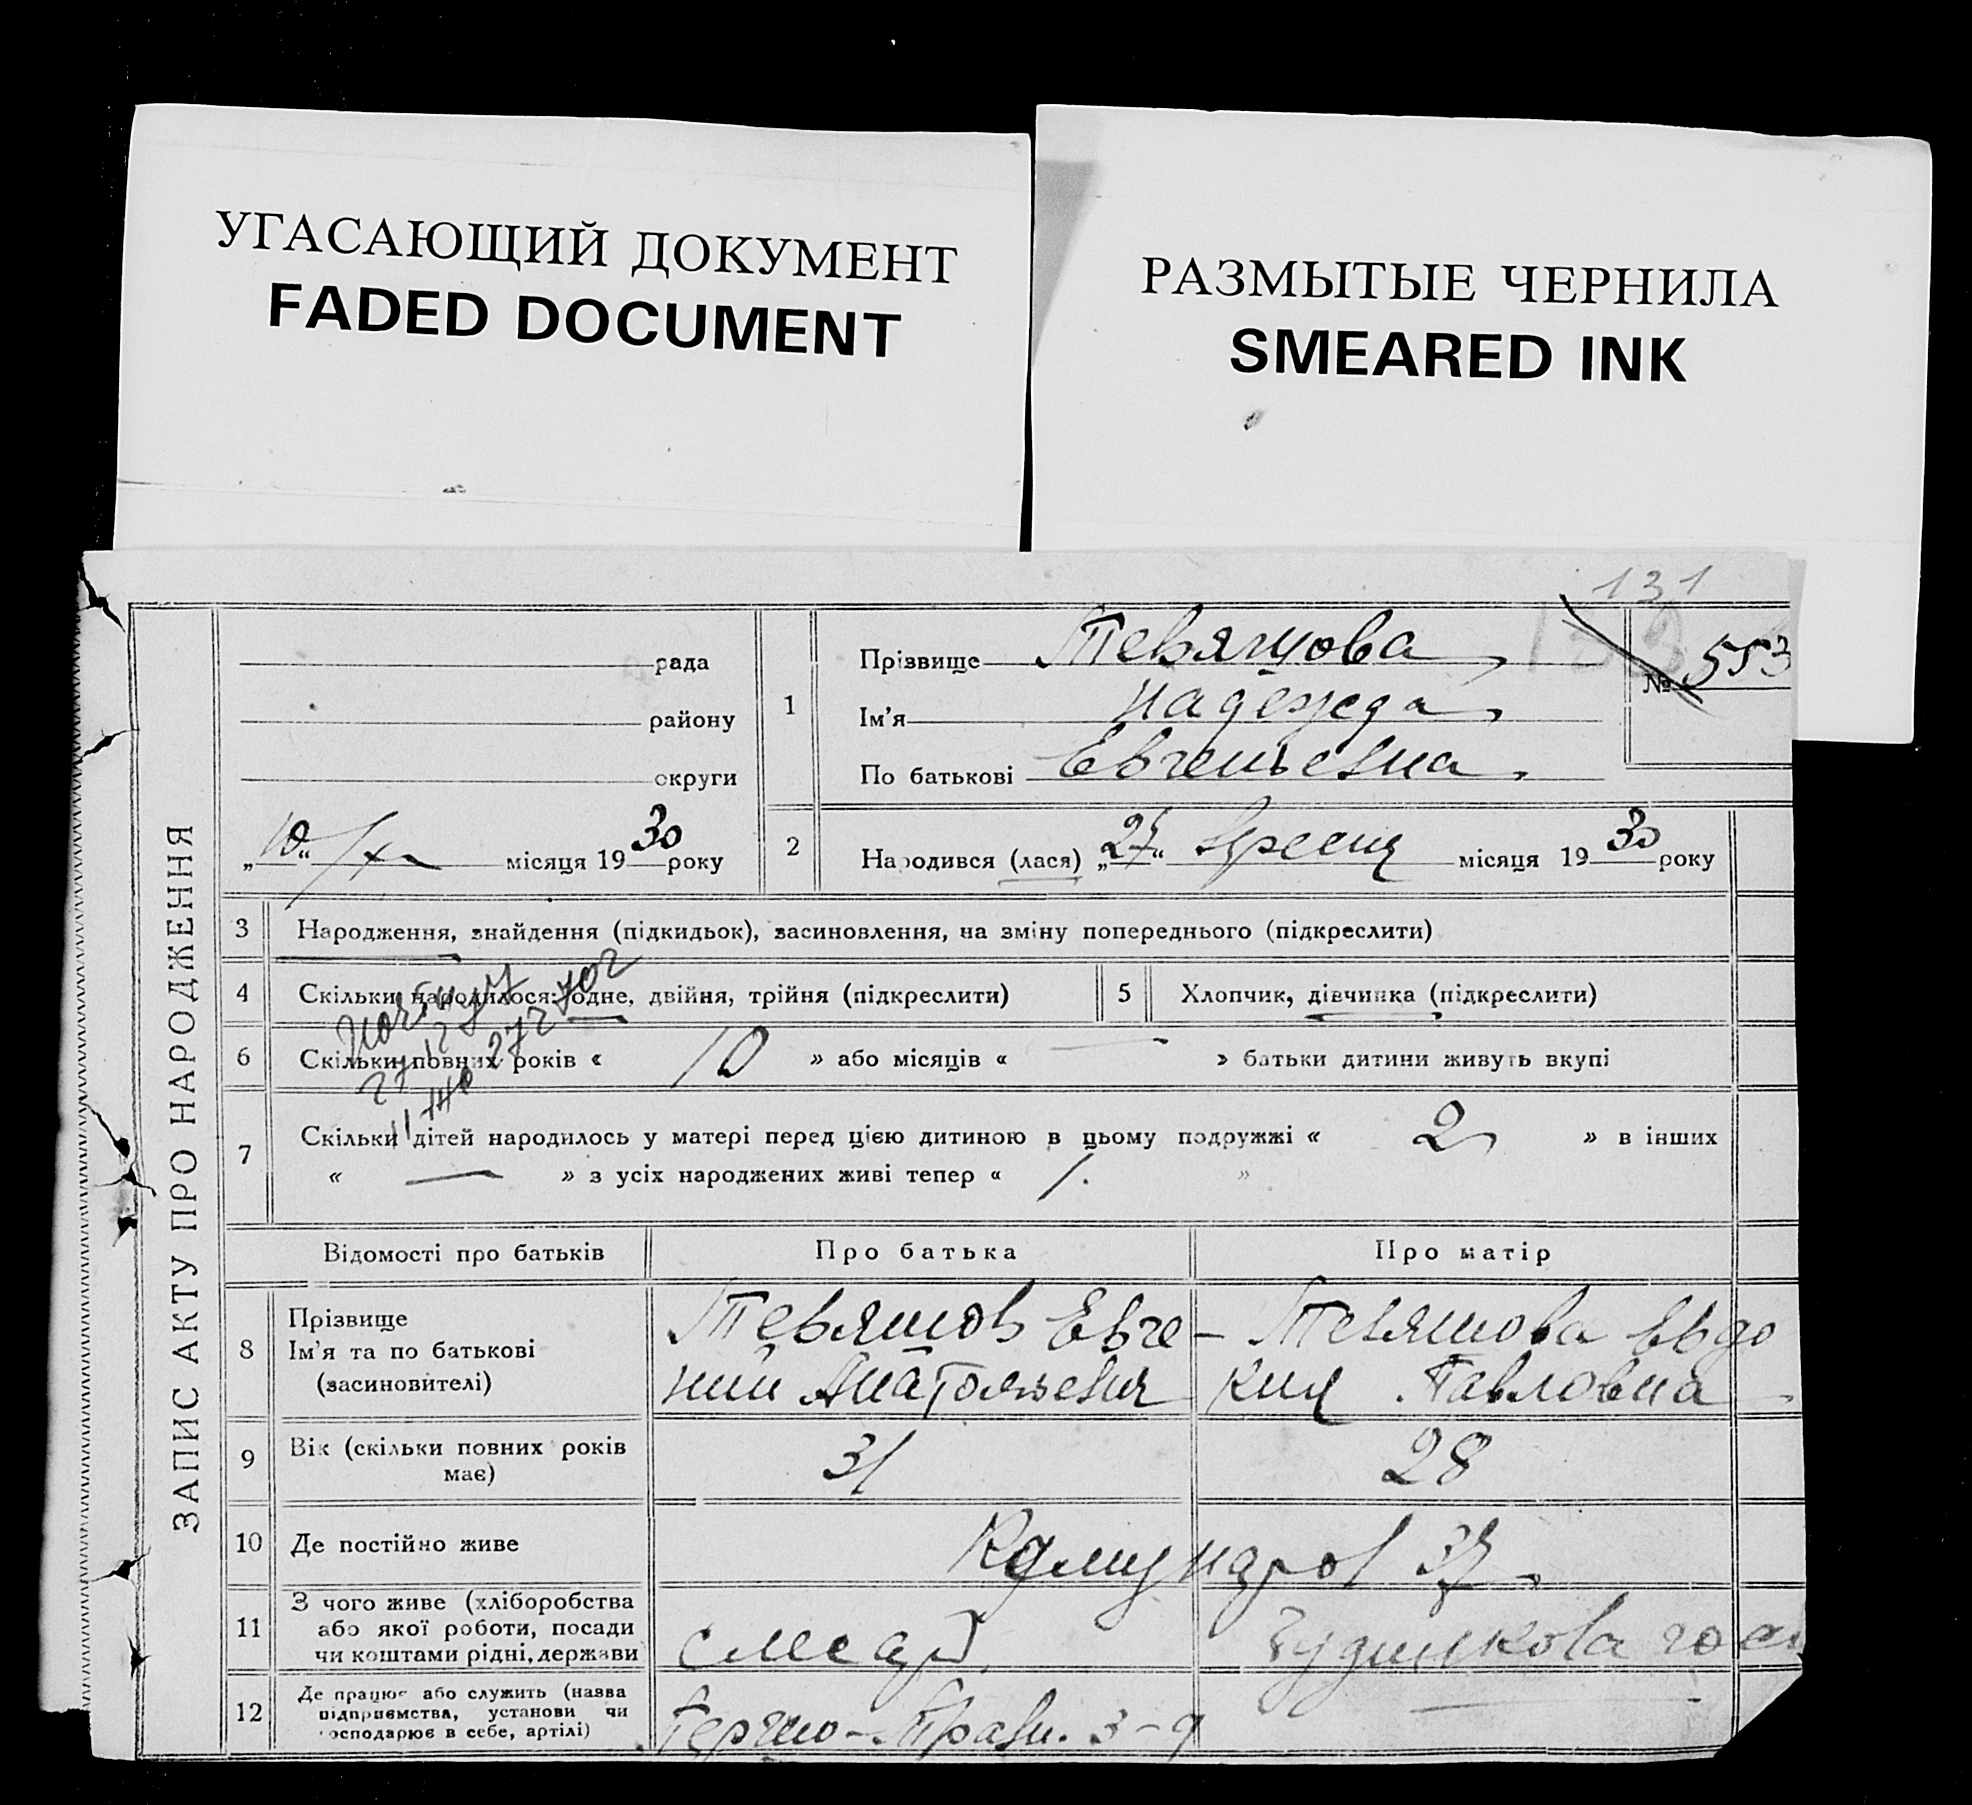 УГАСАЮЩИЙ ДОКУМЕНТ
FADED DOCUMENT
РАЗМЫТЫЕ ЧЕРНИЛА
SMEARED INK
131
ЗАПИС АКТУ ПРО НАРОДЖЕННЯ
рада
району
округи
"10" / X місяця 1930 року
1
Прізвище Тевяшова
Ім'я Надежда
По батькові Евгеньевна
№ 553
2
Народився (лася) „27“ вресня місяця 1930 року
3 Народження, знайдення (підкидьок), засиновлення, на зміну попереднього (підкреслити)
4 Скільки народилося: одне, двійня, трійня (підкреслити)
5 Хлопчик, дівчинка (підкреслити)
6 Скільки повних років « 10 » або місяців « — » батьки дитини живуть вкупі
7 Скільки дітей народилось у матері перед цією дитиною в цьому подружжі « 2 » в інших
« — » з усіх народжених живі тепер « 1. »
Відомості про батьків Про батька Про матір
8 Прізвище
Ім'я та по батькові
(засиновителі)
Тевяшов Евге-
ний Анатольевич
Тевяшова Евдо
кия Павловна
9 Вік (скільки повних років
має)
31
28
10 Де постійно живе
37
11 З чого живе (хліборобства
або якої роботи, посади
чи коштами рідні, держави
слесар
12 Де працює або служить (назва
підприємства, установи чи
господарює в себе, артілі)